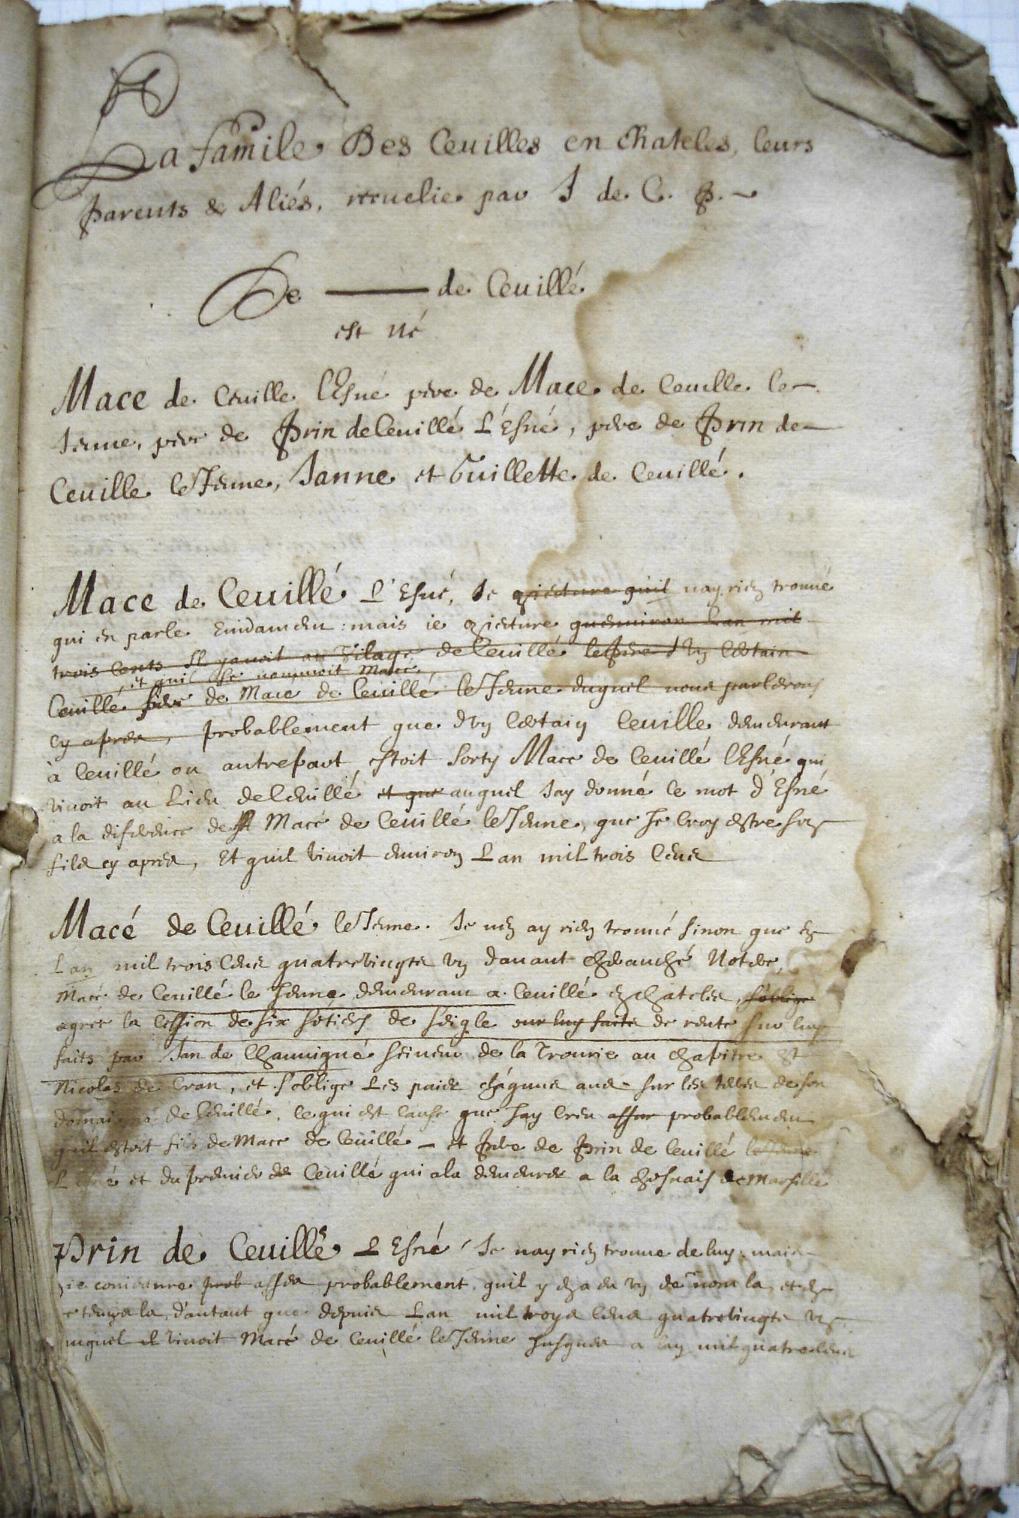 La famile Des Ceuilles en Chateles, leurs
Parents & Aliés, recuelie par J de C. P.
De ——— de Ceuillé
est né
Mace de Ceuille l'Esné pere de Mace de Ceuille le
Jeune, pere de Prin de Ceuillé L'Esné, pere de Prin de
Ceuille le Jeune, Janne et Guillette de Ceuillé.
Mace de Ceuillé L'Esné, Je conjecture quil nay rien trouué
qui en parle Euidamen : mais ie conjecture quenuiron Lan mil
trois cents Il y auoit au vilage de Ceuillé d'un Certain
et quil se nommoit Mace
Ceuillé de Mace de Ceuillé le Jeune duquel nous parlerons
cy apres, probablement que d'un Certain Ceuille demeurant
à Ceuillé ou autrepart estoit sorty Mace de Ceuillé l'Esné qui
viuoit au Lieu de Ceuillé et que auquel Jay donné le mot d'Esné
a la diference de Macé de Ceuillé le Jeune, que Je Croy estre son
fils cy apres, Et quil viuoit enuiron Lan mil trois Cens
Macé de Ceuillé le Jeune. Je nen ay rien trouué sinon que en
Lan mil trois Cens quatre vingts un dauant Notere,
Macé de Ceuillé le Jeune demeurant a Ceuillé en Chateles, s'oblige
agree la Cession de six de seigle sur luy faite de rente sur luy
faits par Jan de Chauuigné seineur de la Trourie au chapitre St
Nicolas de Cran, et s'oblige Les paier chaqune ans sur les telles de son
domaine de Ceuillé, ce qui est cause que Jay creu asser probablemen
quil estoit fils de Mace de Ceuillé — et Pere de Prin de Ceuillé le Jeune
L'Esné et du premier de Ceuillé qui ala demeurer a la Chesnais de Marsille
Prin de Ceuillé L'Esné Je nay rien trouue de luy, mais
ie prob asses probablement, quil y en a eu un de nom la, et en
ce temps la, d'autant que depuis Lan mil troys Cens quatre vingts un
auquel il viuoit Macé de Ceuillé le Jeune Jusques a lan mil quatre Cens